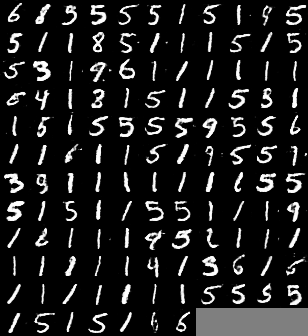 6 8 3 5 5 5 1 5 1 9 5
5 1 1 8 5 1 1 1 5 1 5
5 3 1 9 6 1 1 1 1 1 1
5 4 1 8 1 5 1 1 5 3 1
1 5 1 5 5 5 5 9 5 5 6
1 1 1 1 5 1 9 5 5 1
3 9 1 1 1 1 1 1 1 5 5
5 1 5 1 1 5 5 1 1 1 9
1 1 1 1 5 1 1 1
1 1 1 1 1 4 1 3 6 1 5
1 1 1 1 1 1 1 5 5 5 5
1 5 1 5 1 6